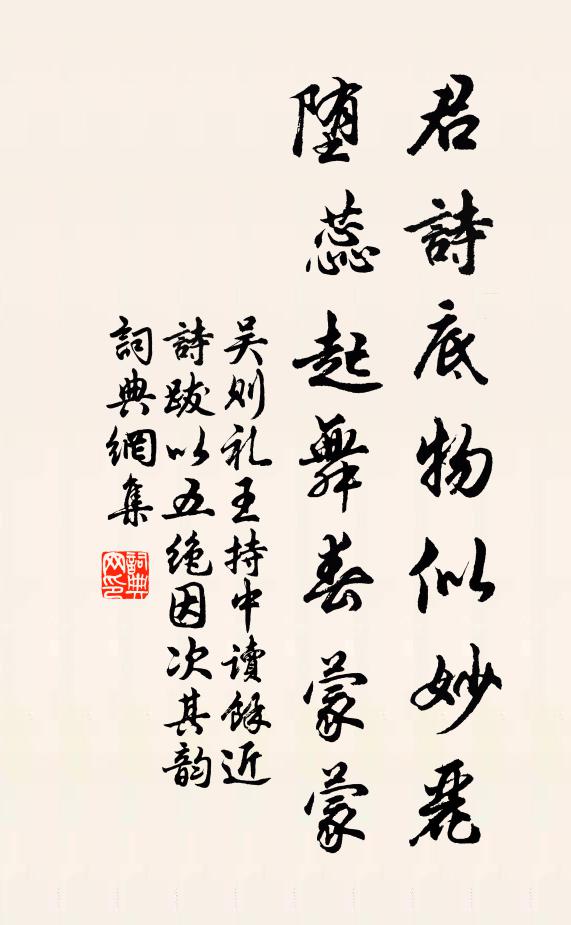 君詩底物似妙麗
堕蕊起舞春蒙蒙
吴则礼王持中讀餘近
詩跋以五絶因次其韵
詞典網集
詞典
网印